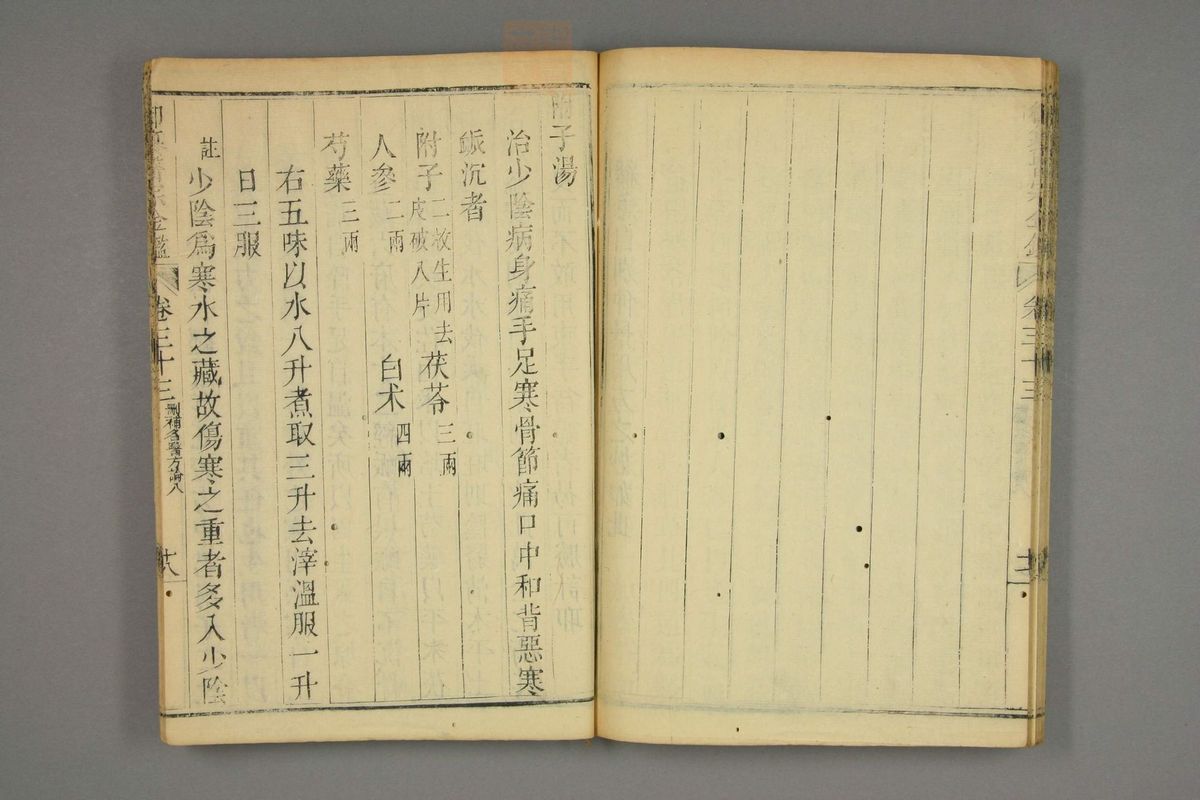 卷三十三
附子湯
治少陰病身痛手足寒骨節痛口中和背惡寒
脈沉者
附子二枚生用去皮破八片 茯苓三兩
人參二兩 白术四兩
芍藥三兩
右五味以水八升煮取三升去滓溫服一升
日三服
註少陰爲寒水之藏故傷寒之重者多入少陰
金鑑 卷三十三 刪補名醫方論八